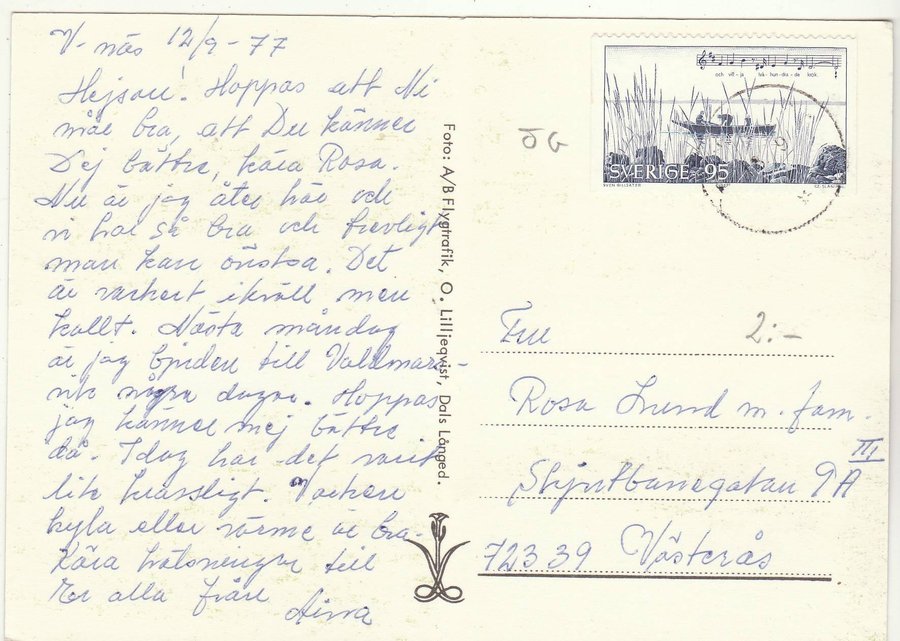 V-näs 12/9-77
Hejsan! Hoppas att Ni
mår bra, att Du känner
Dej bättre, kära Rosa.
Nu är jag åter här och
vi har så bra och trevligt
man kan önska. Det
är vackert ikväll men
kallt. Nästa måndag
är jag bjuden till Valdmars-
vik några dagar. Hoppas
jag känner mej bättre
då. Idag har det varit
lite krassligt. Varken
kyla eller värme är bra.
Kära hälsningar till
Er alla från
Foto: A/B Flygtrafik, O. Lilljeqvist, Dals Långed.
och vill-ja tak-hun-dra-de krök.
SVERIGE 95
SVEN WILLSÄTER
CZ. SLANIA
ÖG
2:-
Fru
Rosa Lund m. fam.
Skjutbanegatan 9A III
723 39 Västerås